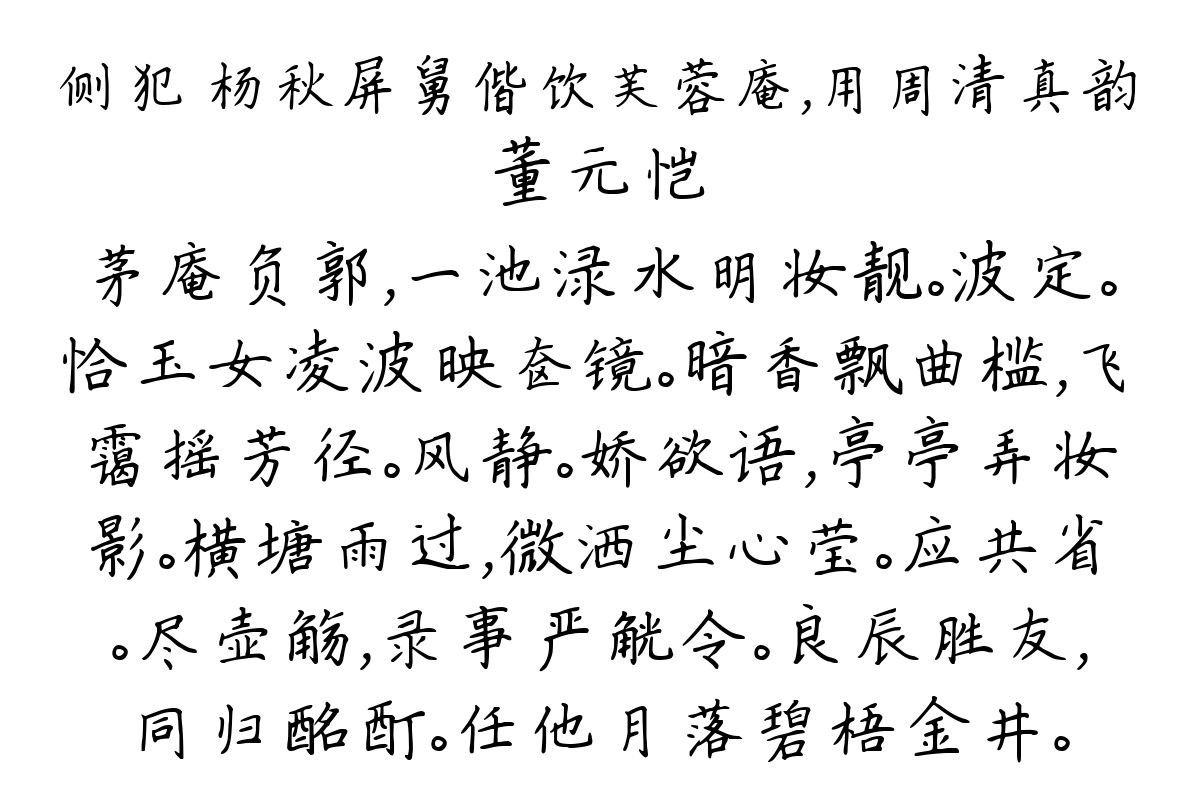 侧犯 杨秋屏舅偕饮芙蓉庵,用周清真韵
董元恺
茅庵负郭,一池渌水明妆靓。波定。
恰玉女凌波映奁镜。暗香飘曲槛,飞
霭摇芳径。风静。娇欲语,亭亭弄妆
影。横塘雨过,微洒尘心莹。应共省
。尽壶觞,录事严觥令。良辰胜友,
同归酩酊。任他月落碧梧金井。